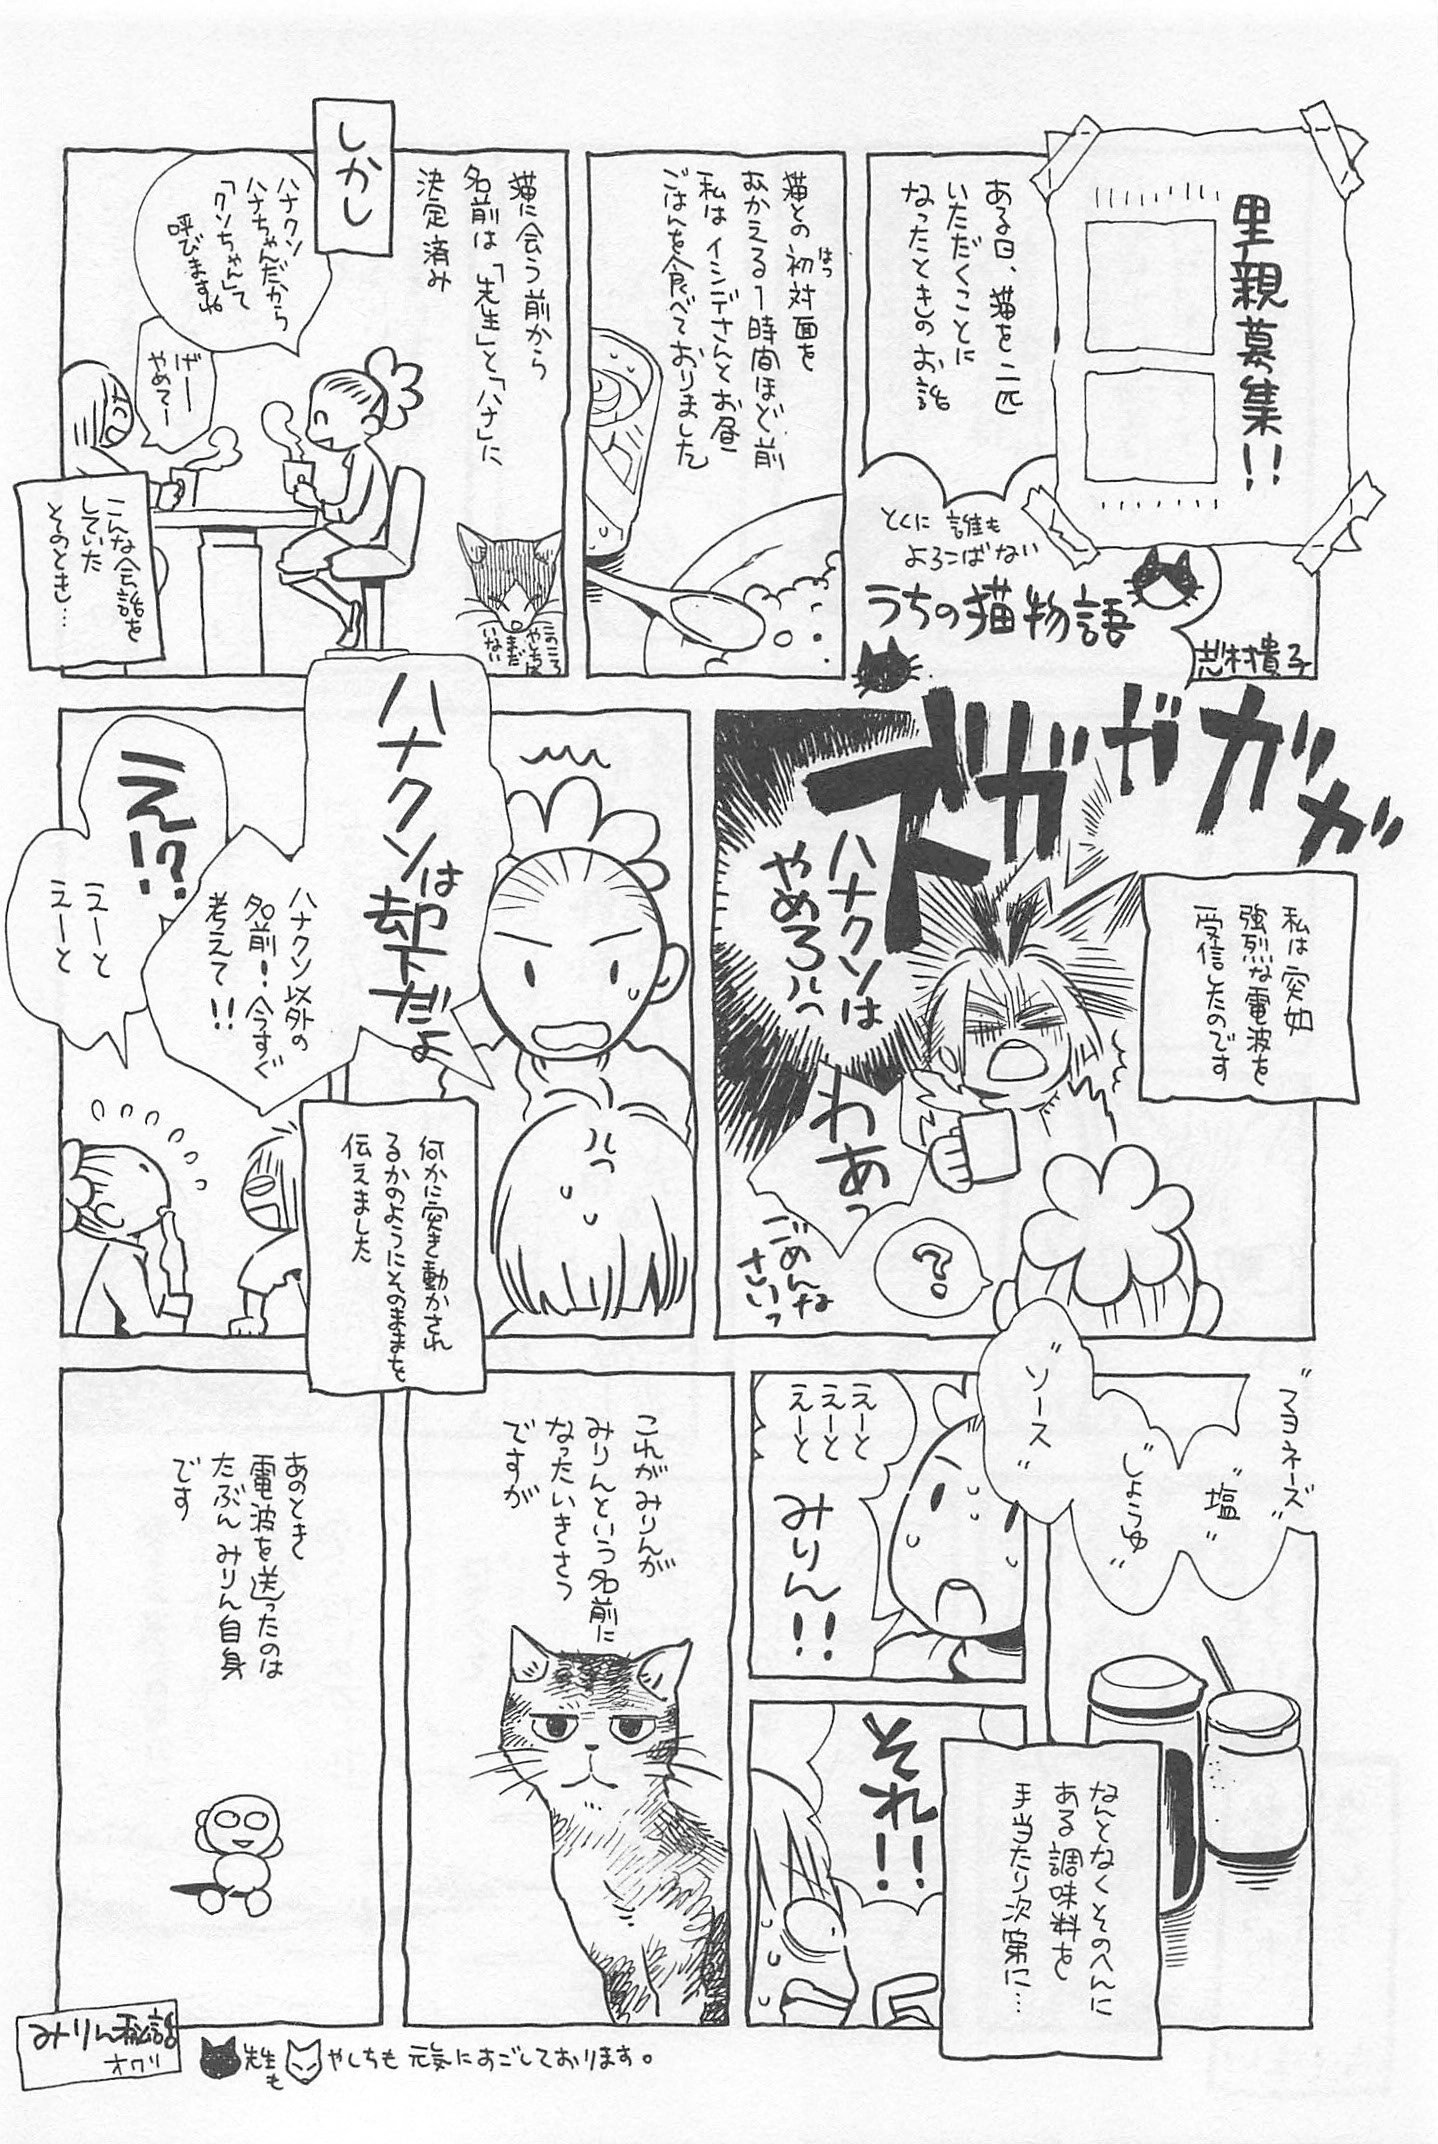 里親募集!!
ある日、猫を二匹
いただくことに
なったときのお話
とくに誰も
よろこばない
うちの猫物語
志村貴子
猫との初対面を
はつ
むかえる1時間ほど前
私はイシデさんとお昼
ごはんを食べておりました
猫に会う前から
名前は「先生」と「ハナ」に
決定済み
このころ
やしちは
まだ
いない
しかし
ハナクソ
ハナちゃんだから
「クソちゃん」て
呼びますね
げー
やめてー
こんな会話を
していた
そのとき…
ズガガガガガ
私は突如
強烈な電波を
受信したのです
ハナクソは
やめろハっ
わあっ
ごめんな
さいっ
?
ハナクソは
却下だよ
ハっ
何かに突き動かされ
るかのようにそのままを
伝えました
ハナクソ以外の
名前!今すぐ
考えて!!
え!?
えーと
えーと
"マヨネーズ"
"塩"
"しょうゆ"
"ソース"
なんとなくそのへんに
ある調味料を
手当たり次第に…
えーと
えーと
えーと
みりん!!
それ!!
これがみりんが
みりんという名前に
なったいきさつ
ですが
あのとき
電波を送ったのは
たぶんみりん自身
です
みりん秘話
オワリ
先生も
やしちも元気にすごしております。